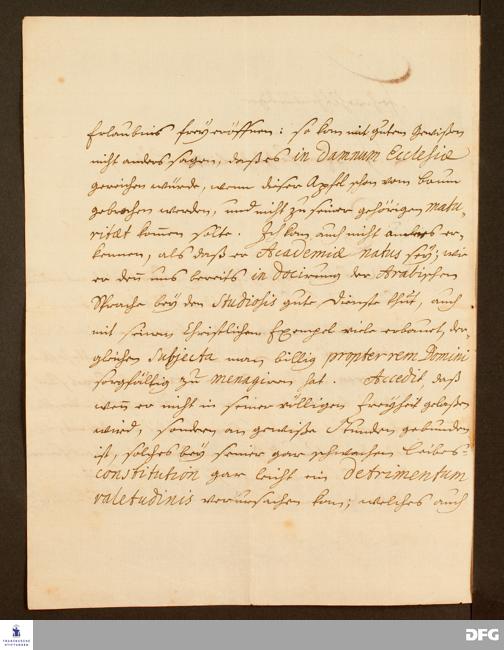 Erlaubnis frey eröffnen: so kan mit gutem Gewißen
nicht anders sagen, daß es in damnum Ecclesiæ
gereichen würde, wenn dieser Apfel schon vom baum
gebrochen werden, und nicht zu seiner gehörigen matu-
ritæt kommen solte. Ich kan auch nicht anders er-
kennen, als daß er Academiæ natus sey; wie
er den uns bereits in docirung der Arabischen
Sprache bey den Studiosis gute dienste thut, auch
mit seinem Christlichen Exempel viele erbauet, der-
gleichen Subjecta man billig propter rem Domini
sorgfältig zu menagiren hat. Accedit, daß
wenn er nicht in seiner völligen Freyheit gelaßen
wird, sondern an gewiße Stunden gebunden
ist, solches bey seiner gar schwachen leibes-
constitution gar leicht ein detrimentum
valetudinis verursachen kan; welches auch
FRANCKESCHE
STIFTUNGEN
DFG